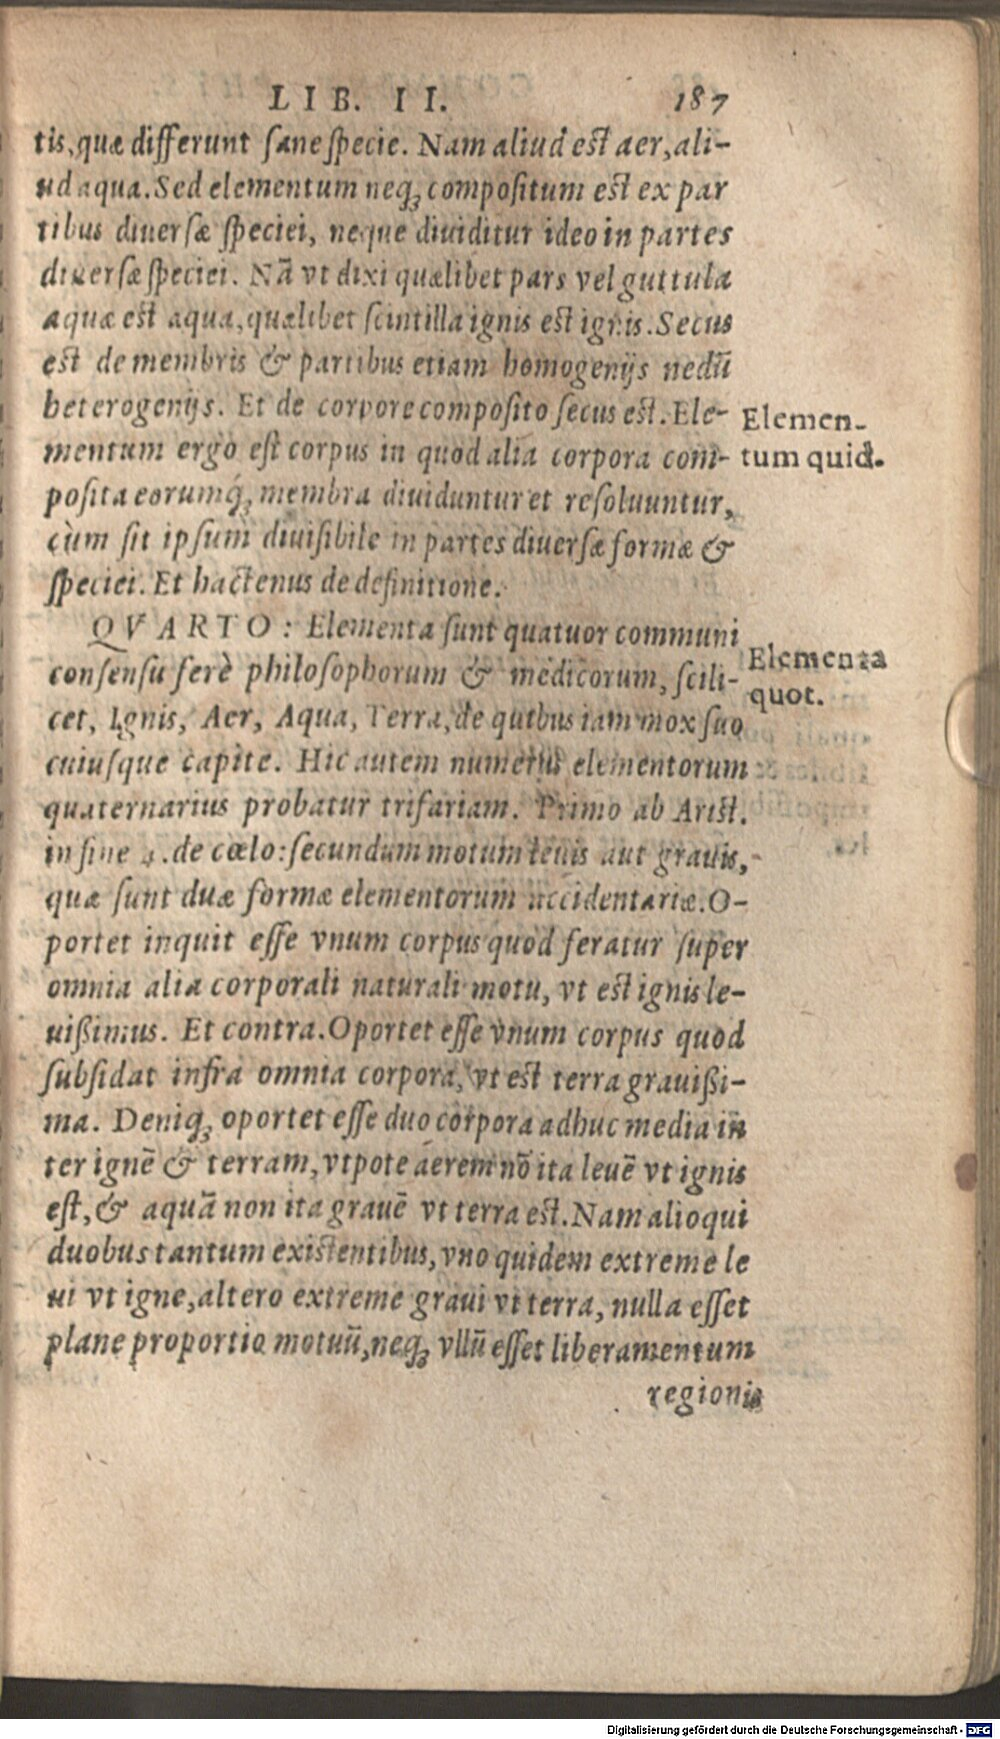 LIB. II. 187
tis, quæ differunt sane specie. Nam aliud est aer, ali-
ud aqua. Sed elementum neq; compositum est ex par
tibus diuersæ speciei, neque diuiditur ideo in partes
diuersæ speciei. Nā vt dixi quælibet pars vel guttula
aquæ est aqua, quælibet scintilla ignis est ignis. Secus
est de membris & partibus etiam homogenijs nedū
heterogenijs. Et de corpore composito secus est. Ele-
Elemen-
mentum ergo est corpus in quod alia corpora com-
tum quid.
posita eorumq́; membra diuiduntur et resoluuntur,
cùm sit ipsum diuisibile in partes diuersæ formæ &
speciei. Et hactenus de definitione.
QVARTO: Elementa sunt quatuor communi
Elementa
consensu ferè philosophorum & medicorum, scili-
quot.
cet, Ignis, Aer, Aqua, Terra, de quibus iam mox suo
cuiusque capite. Hic autem numerus elementorum
quaternarius probatur trifariam. Primo ab Arist.
in fine 4. de cœlo: secundum motum leuis aut grauis,
quæ sunt duæ formæ elementorum accidentariæ. O-
portet inquit esse vnum corpus quod feratur super
omnia alia corporali naturali motu, vt est ignis le-
uißimus. Et contra. Oportet esse vnum corpus quod
subsidat infra omnia corpora, vt est terra grauißi-
ma. Deniq; oportet esse duo corpora adhuc media in
ter ignē & terram, vtpote aerem nō ita leuē vt ignis
est, & aquā non ita grauē vt terra est. Nam alioqui
duobus tantum existentibus, vno quidem extreme le
ui vt igne, altero extreme graui vt terra, nulla esset
plane proportio motuū, neq; vllū esset liberamentum
regionis
Digitalisierung gefördert durch die Deutsche Forschungsgemeinschaft - DFG